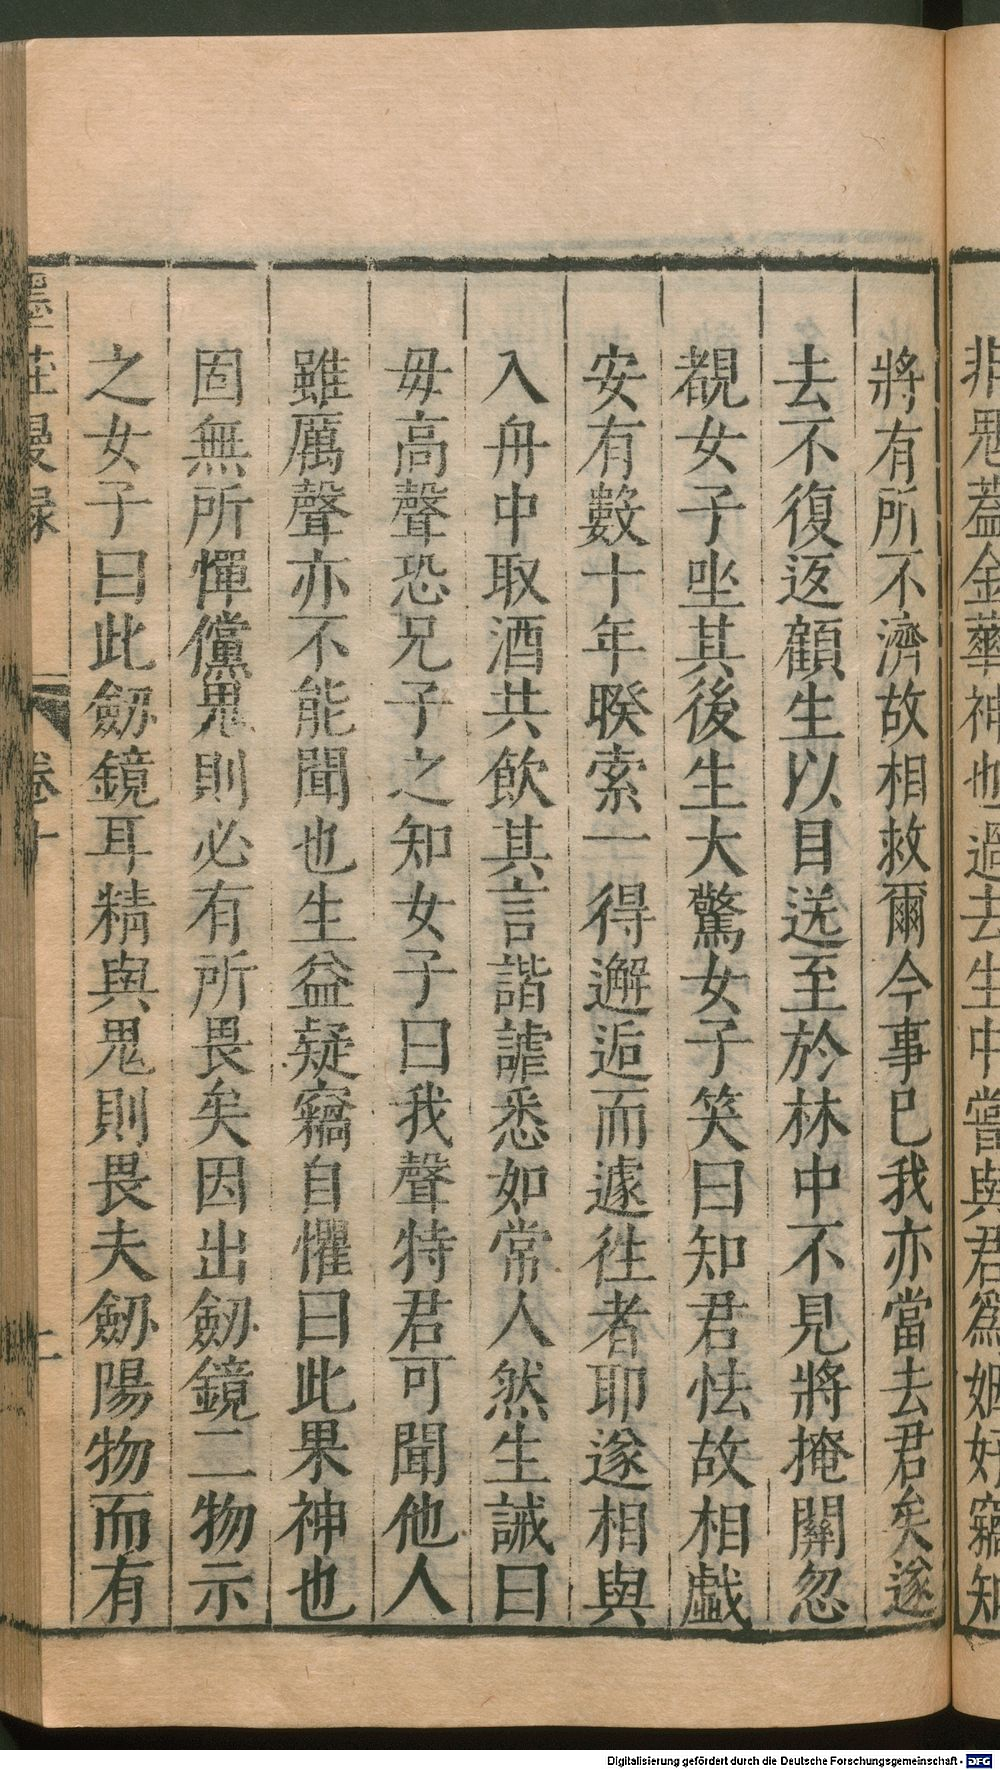 非鬼蓋金華神也過去生中嘗與君爲姻好竊知
將有所不濟故相救爾今事已我亦當去君矣遂
去不復返顧生以目送至於林中不見將掩關忽
覩女子坐其後生大驚女子笑曰知君怯故相戲
安有數十年睽索一得邂逅而遽徃者耶遂相與
入舟中取酒共飲其言諧謔悉如常人然生誡曰
毋高聲恐兄子之知女子曰我聲特君可聞他人
雖厲聲亦不能聞也生益疑竊自懼曰此果神也
固無所憚儻鬼則必有所畏矣因出劒鏡二物示
之女子曰此劒鏡耳精與鬼則畏夫劒陽物而有
墨莊漫録 卷十 二
Digitalisierung gefördert durch die Deutsche Forschungsgemeinschaft - DFG